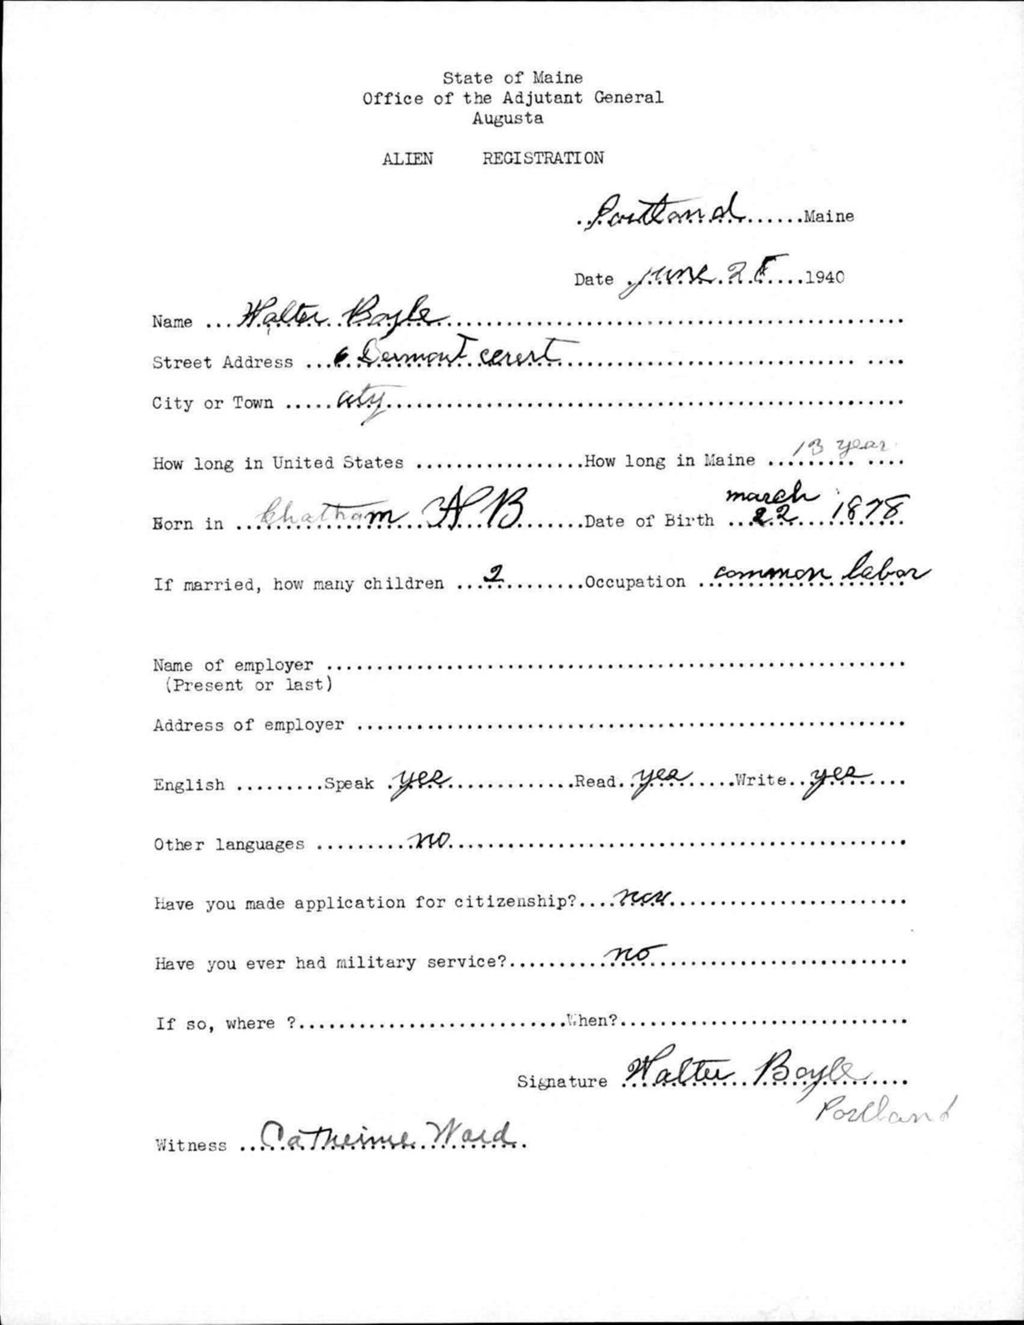 State of Maine
Office of the Adjutant General
Augusta
ALIEN REGISTRATION
Portland Maine
Date June 25 1940
Name Walter Boyle
Street Address 6 Dermont
City or Town city
How long in United States How long in Maine 13 year
Born in Chatham NB Date of Birth march 22 1878
If married, how many children 2 Occupation common labor
Name of employer
(Present or last)
Address of employer
English Speak yes Read yes Write yes
Other languages no
Have you made application for citizenship?
Have you ever had military service? no
If so, where ? When?
Signature Walter Boyle
Portland
Witness Catherine Ward